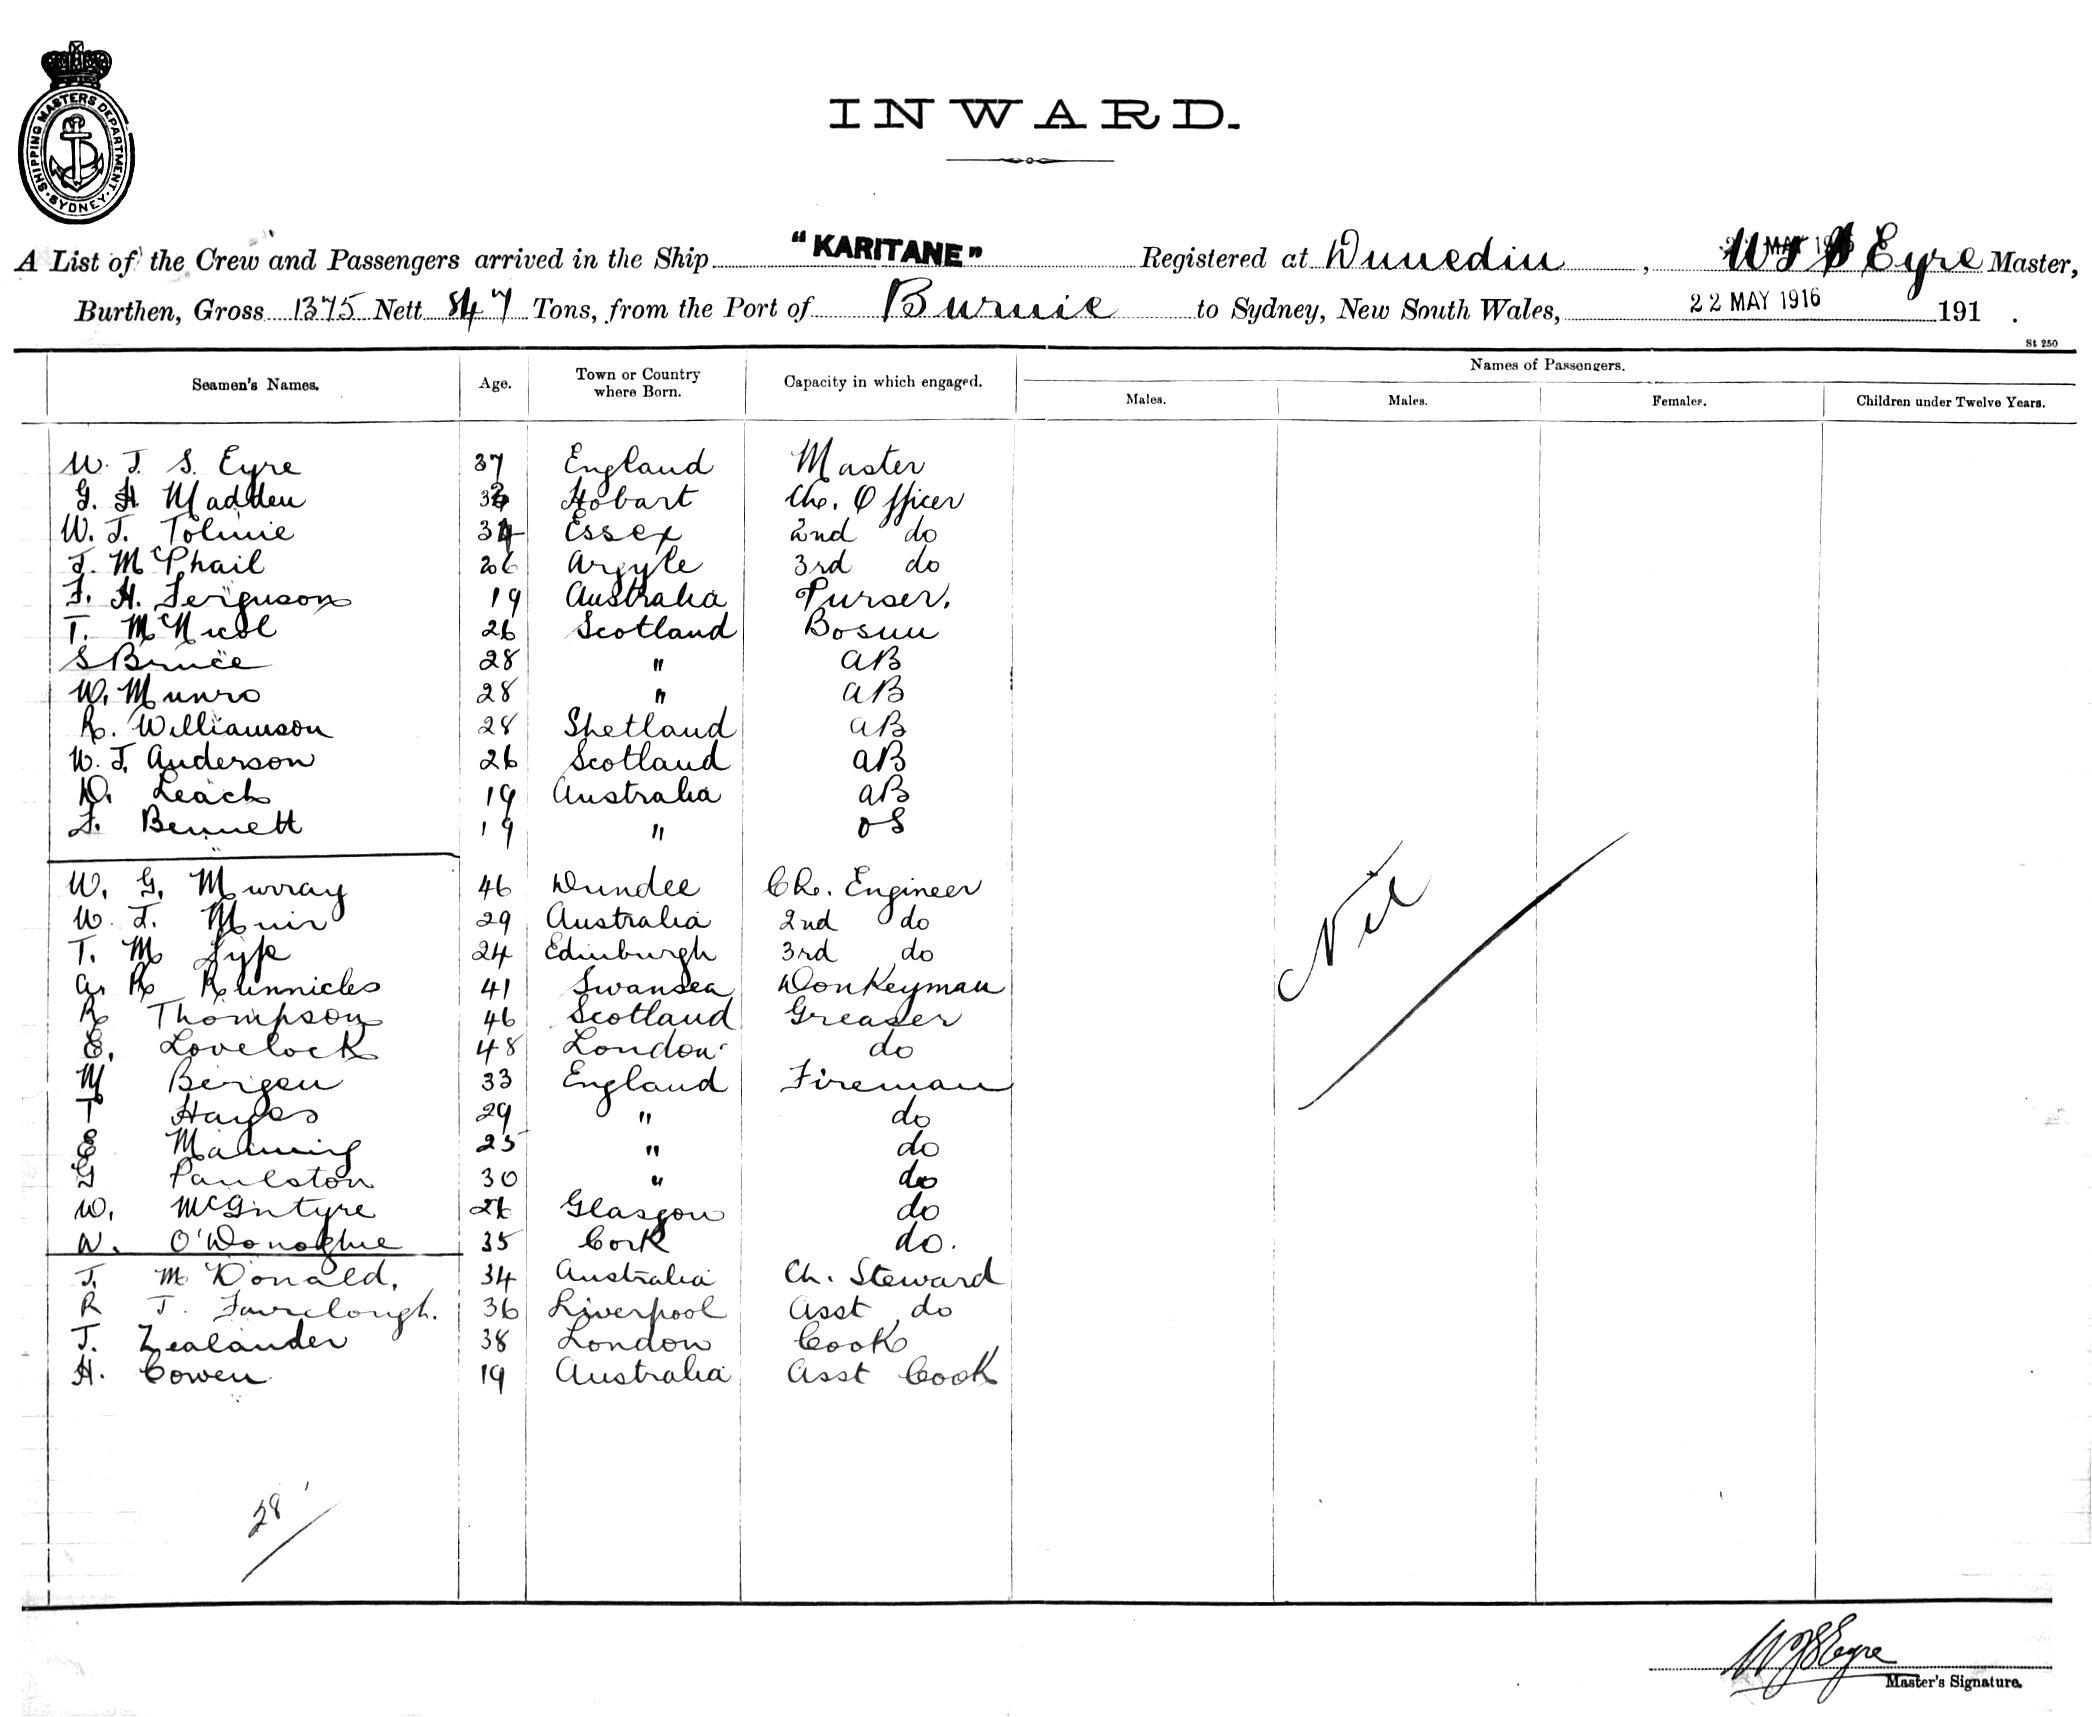 SHIPPING MASTERS DEPARTMENT · SYDNEY ·
INWARD.
A List of the Crew and Passengers arrived in the Ship "KARITANE" Registered at Dunedin, W T S Eyre Master,
Burthen, Gross 1375 Nett 847 Tons, from the Port of Burnie to Sydney, New South Wales, 22 MAY 1916 191 .
St 250
Seamen's Names. Age. Town or Country where Born. Capacity in which engaged. Names of Passengers.
Males. Males. Females. Children under Twelve Years.
W. T. S. Eyre 37 England Master
G. H Madden Hobart Ch. Officer
W. J. Tolmie 34 Essex 2nd do
J. McPhail 26 Argyle 3rd do
F. H. Ferguson 19 Australia Purser.
T. McNicol 26 Scotland Bosun
S Bruce 28 " AB
W. Munro 28 " AB
R. Williamson 28 Shetland AB
W. J. Anderson 26 Scotland AB
D. Leach 19 Australia AB
F. Bennett 19 " OS
W. G. Murray 46 Dundee Ch. Engineer
W. T. Muir 29 Australia 2nd do
T. M Fyfe 24 Edinburgh 3rd do
A. R Runnicles 41 Swansea Donkeyman
R Thompson 46 Scotland Greaser
E. Lovelock 48 London do
M Bergen 33 England Fireman
T Hayes 29 " do
E Manning 25 " do
G Paulston 30 " do
W. McGintyre 26 Glasgow do
W. O'Donoghue 35 Cork do.
J. McDonald, 34 Australia Ch. Steward
R T. Fairclough. 36 Liverpool Asst do
J. Zealander 38 London Cook
H. Cowen 19 Australia Asst Cook
Nil
28
W T S Eyre
Master's Signature.